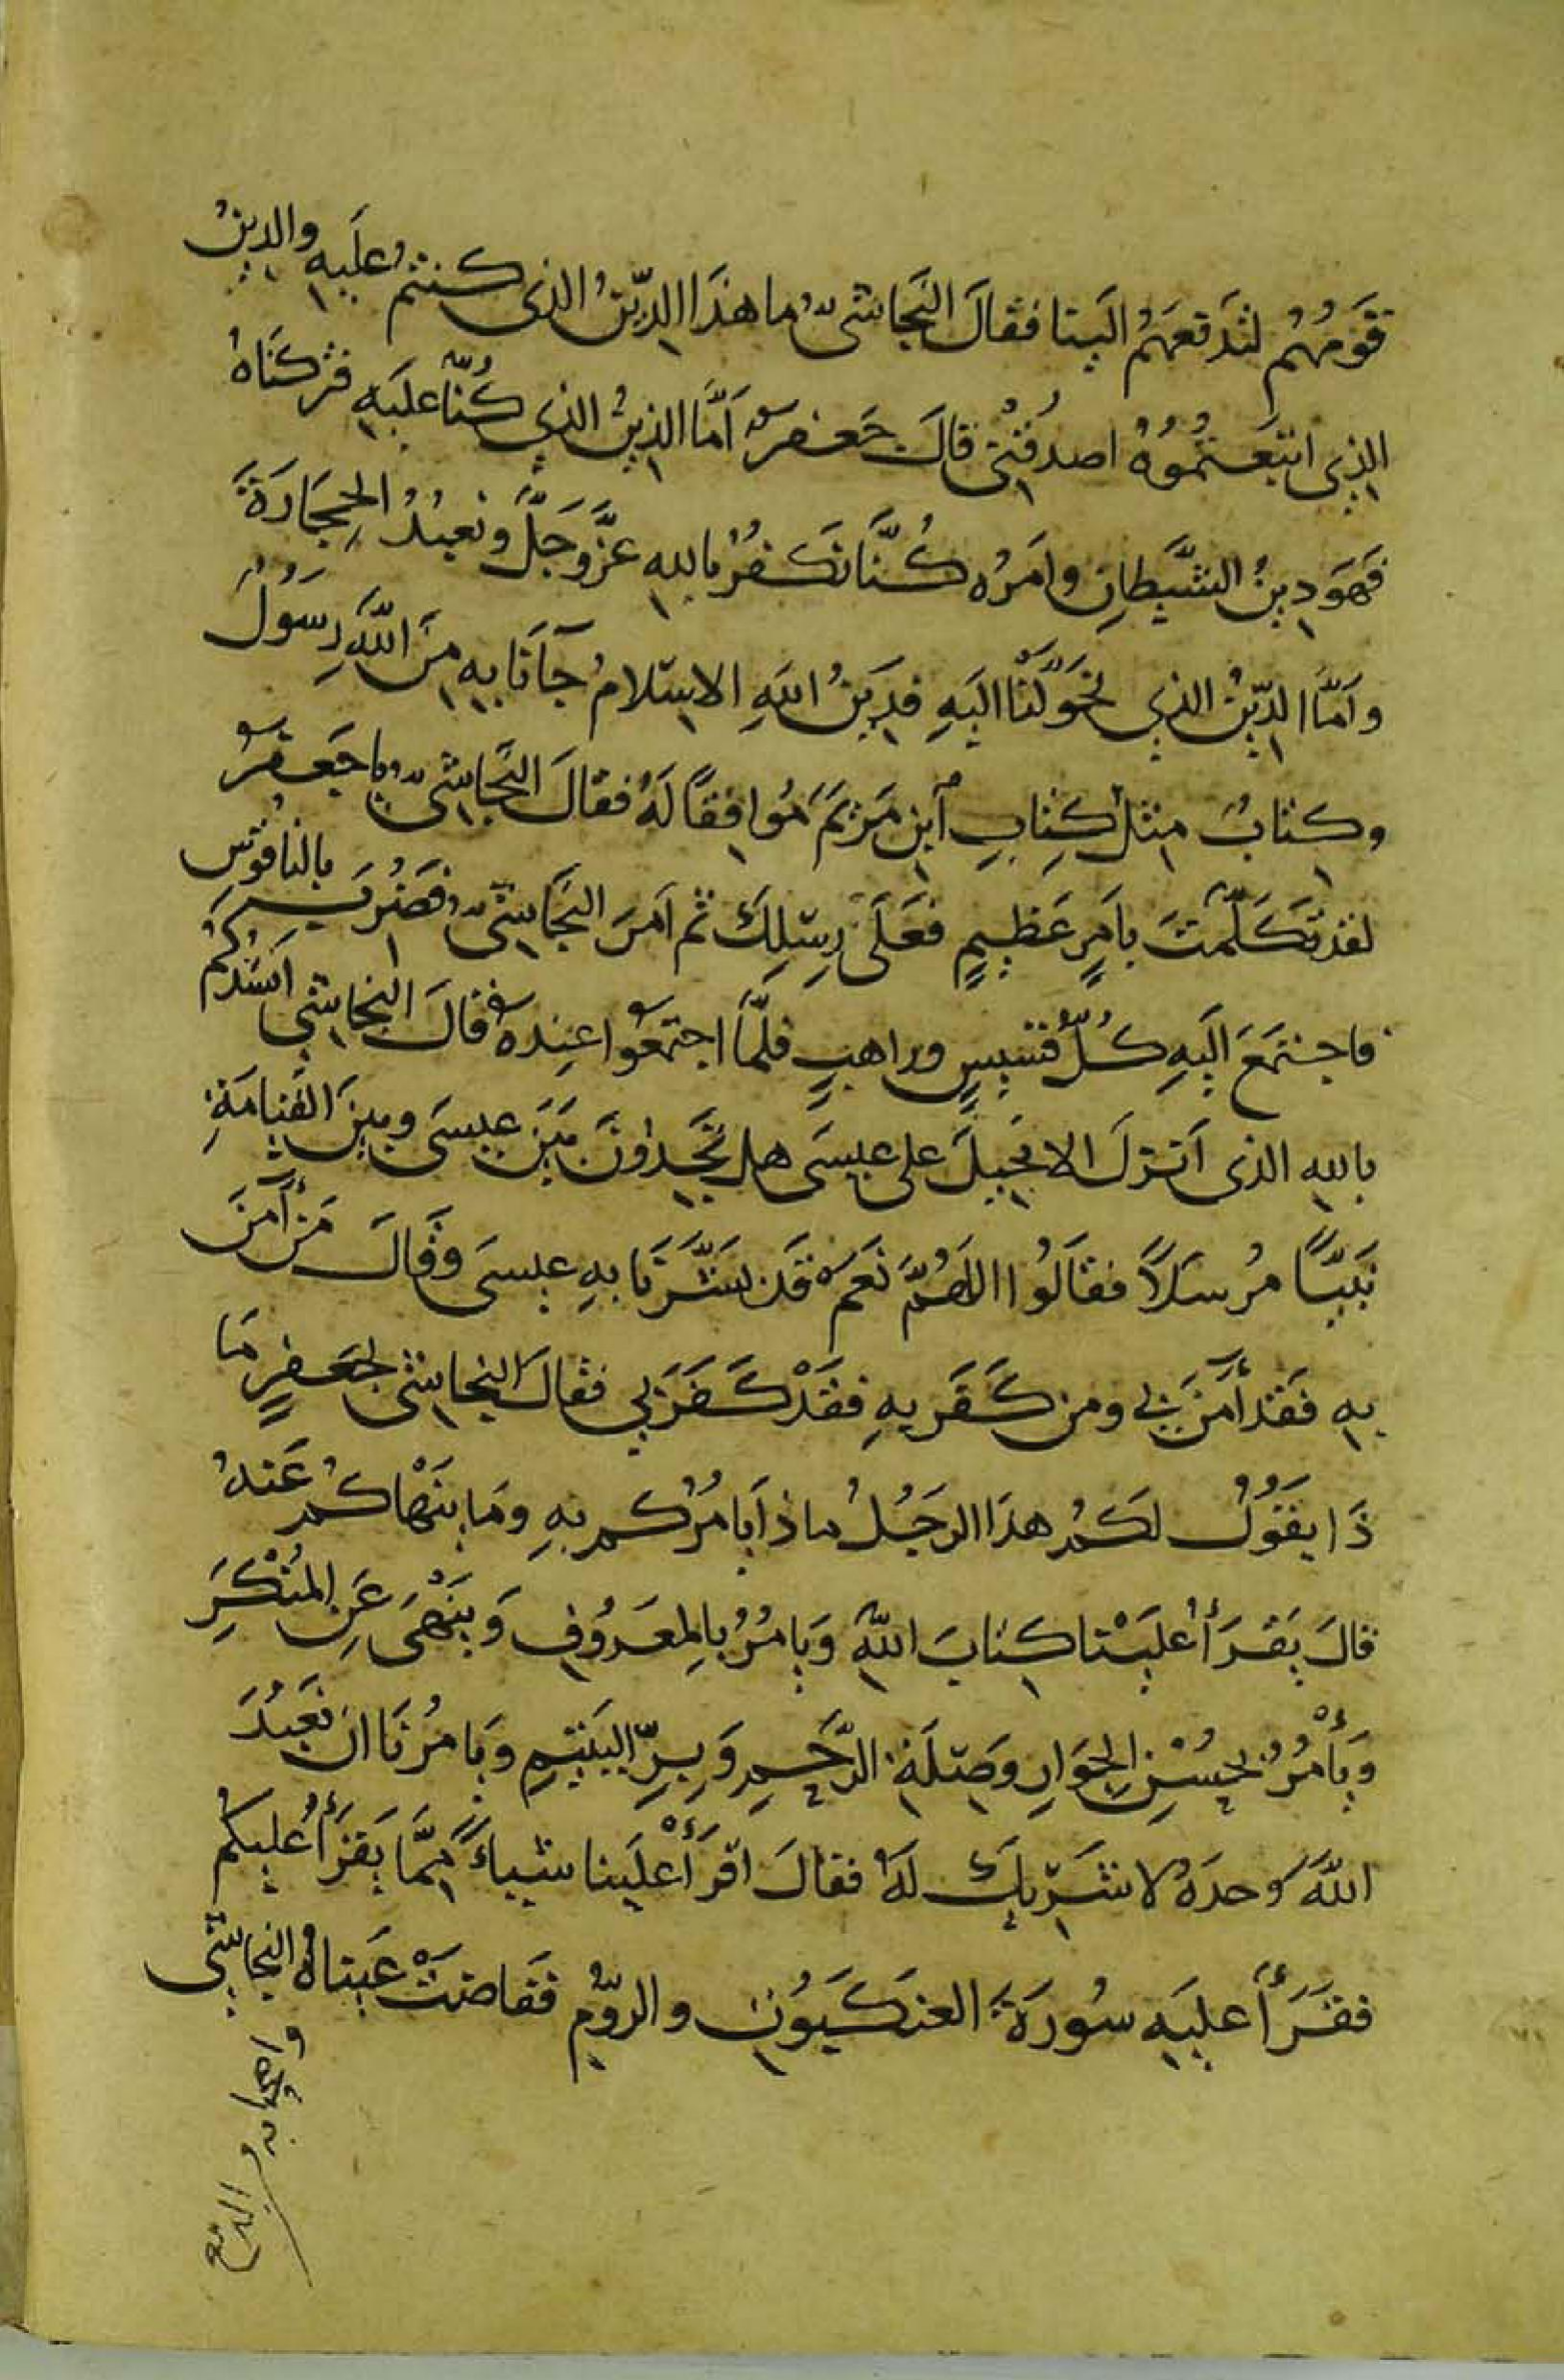 قَومُهُم لتَدفعَهُم الَينا فقالَ النَجاشىّ ما هذَا الدِّينُ الذى كنتم علَيهِ والدينُ
الذِى اتبَعتمُوُهُ اصدُقنِى قالَ جَعفرٌ أمَّا الدِينُ الذِي كُنّا علَيهِ فتركنَاهُ
فهَو دِينُ الشَّيطانِ وامرُه كُنَّا نَكفُرُ بالله عَزَّ وجَلَّ ونعبُدُ الحِجَارَةَ
وامَّا الدِّينُ الذِي تحَوَّلْنا اليَهِ فدِينُ اللهِ الاسِلامُ جآنَا بهِ مِنَ اللَّهِ رسَوُلٌ
وكتابٌ مِثلَ كِتابِ ابنِ مَريَمَ مُوافِقاً لَهُ فقالَ النَجاشىّ ياجَعفرُ
لقد تكَلَّمتَ بامَرٍ عَظِيمٍ فعَلَى رِسِلِكَ ثم امَرَ النَجَاشىّ فضُرِبَ بالناقوُسِ
فاجتمَعَ اليَهِ كُلُّ قسِّيسٍ وراهبٍ فلمَّا اجتمعَوُا عِندهُ قالَ النجاشِي انشدُكُم
باللهِ الذى انَزلَ الانجِيلَ على عيسَى هل تجَدِوُنَ بَيَن عيسَى وبينَ القِيامَةِ
نَبيّاً مُرسَلاً فقالَوُا اللهُمَّ نَعَم قَد بشَّرَنَا بهِ عيسَى وقالَ مَن آمَنَ
بهِ فقَد أمَنَ بي ومن كَفَر بهِ فقَدْ كَفَرَ بِي فقالَ النجاشى لجَعفرٍ مَا
ذَا يقَوُلُ لكُم هذَا الرجَلُ ماذا يَامُرُكم بهِ ومَا ينَهاكُم عَنهُ
قالَ يقَرَأُ عليَنا كتابَ اللهِ وَيامُرُ بالمعَروُفِ وَينَهى عَنِ المُنْكَرِ
وَيأمُرُ بحُسْنِ الجِوَارِ وَصِلَةِ الرَّحِمِ وَبِرِّ اليَتيمِ وَيامُرُنَا ان نَعَبُدَ
اللهَ وحدَهُ لا شَرِيكَ لَهُ فقالَ اقرَأْ علَينا شيئاً مِمَّا يَقرَأُ عليكم
فقَرَأَ عليَهِ سُورَةَ العنَكبَوُتِ والروُّمِ فَفاضَتْ عَيناهُ النجاشى
واصحابه و الدمع